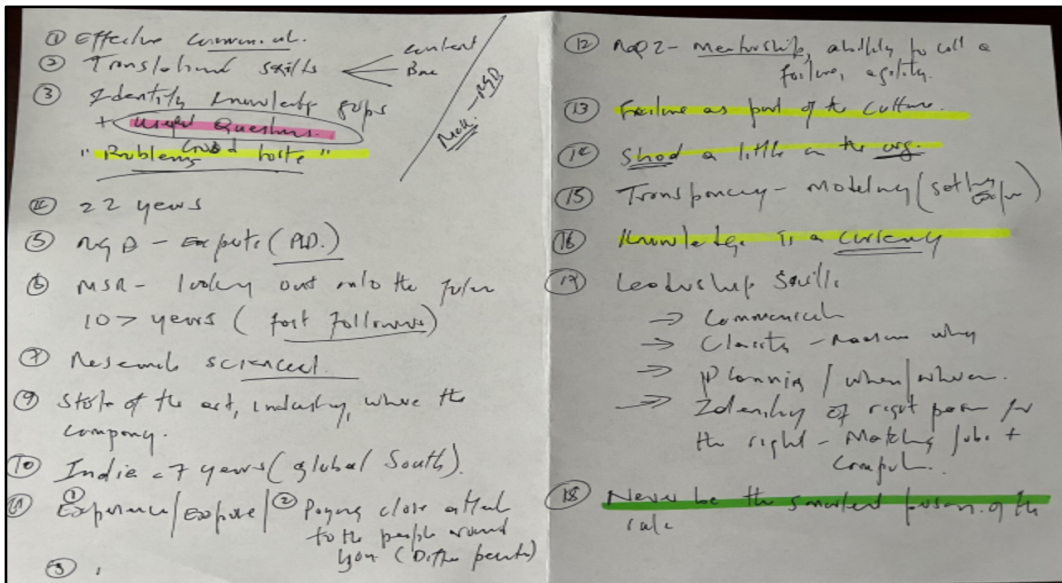 ① Effective communicat.
② Translational skills
content
Base
③ Identify knowledge gaps
+ Questions.
Good
"Problems taste"
④ 22 years
⑤ R&D – Experts (PhD.)
⑥ MSR – looking out onto the future
10> years (fast followers)
⑦ Research scienced
⑨ State of the art, industry, where the
company.
⑩ India – 7 years (global South).
⑪ ① Experience/expose/ ② Paying close attent
to the people around
you
③
⑫ – mentorship, ability to call a
failure, agility.
⑬ Failure as part of the culture.
⑭ a little in the org.
⑮ Transparency – modeling (setting
⑯ Knowledge is a currency
⑰ Leadership Skills
→ Communicat
→ Clarity – why
→ Planning / when/where.
→ Identity of right person for
the right – Matching Jobs +
⑱ Never be the smartest person of the